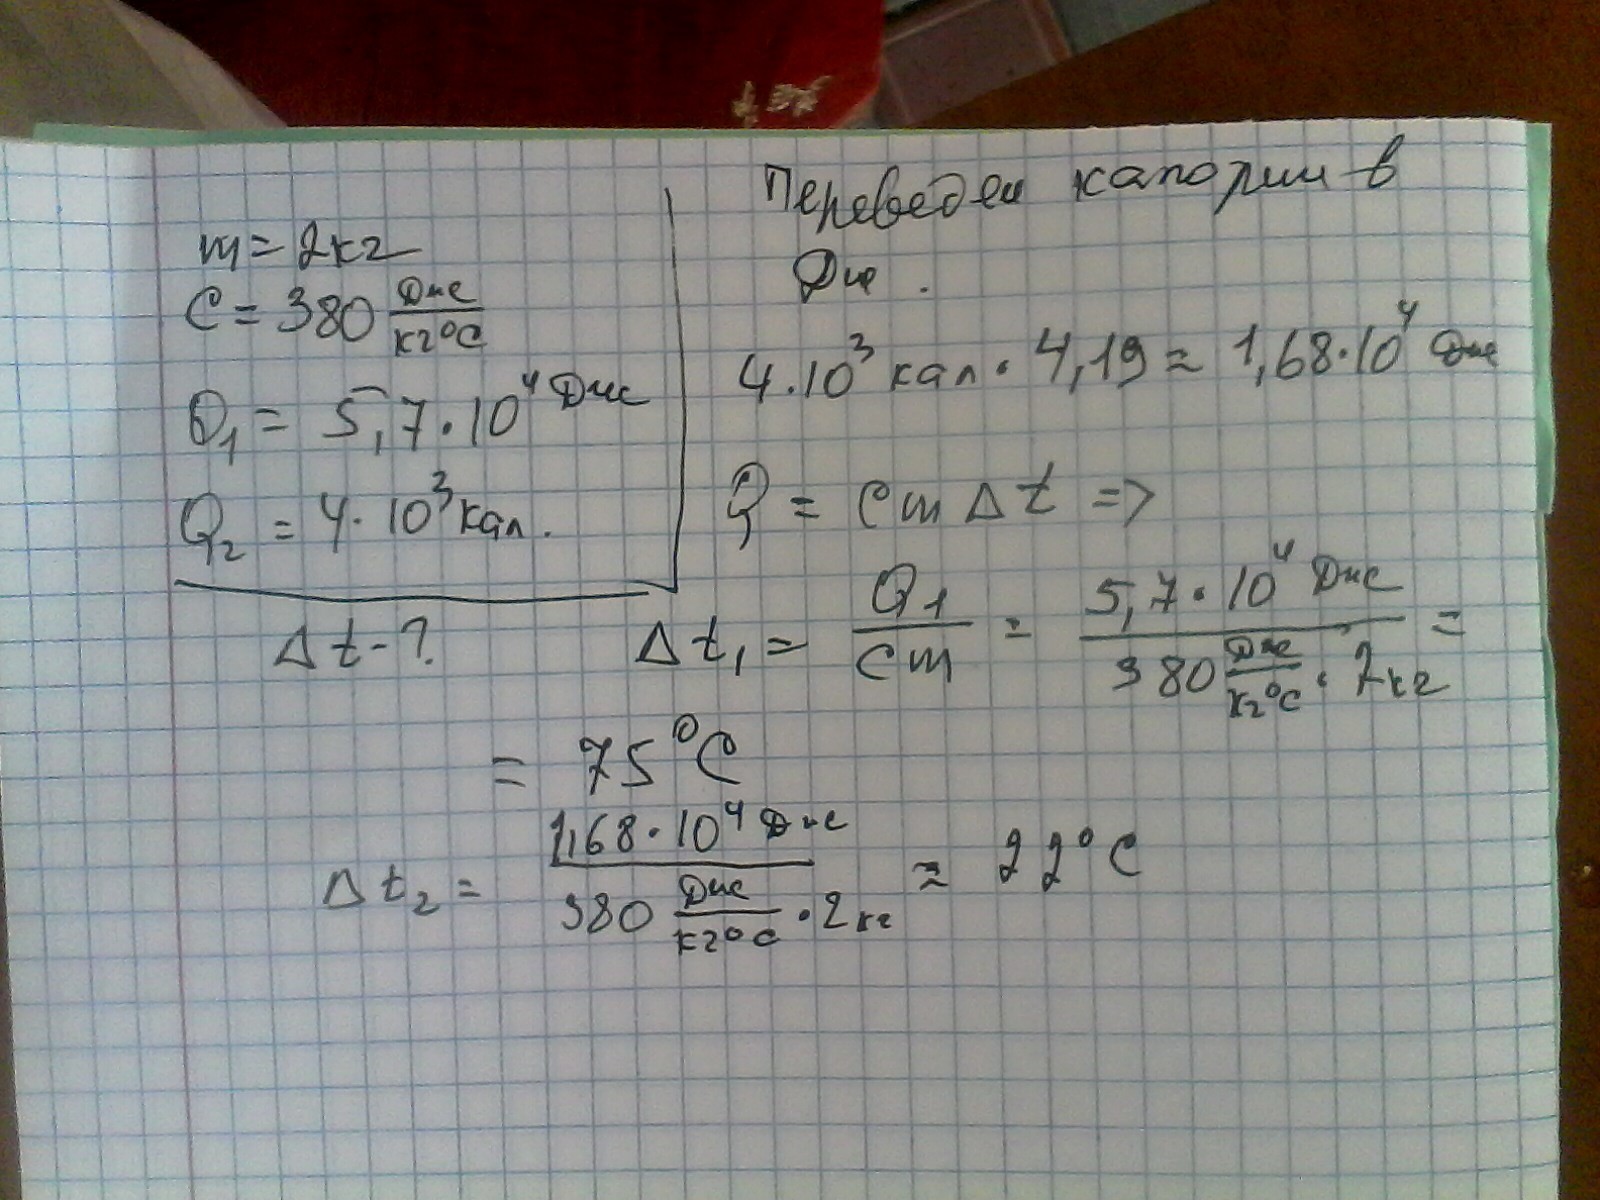 m = 2кг
C = 380 Дж/кг°C
Q₁ = 5,7·10⁴ Дж
Q₂ = 4·10³ кал.
Δt-?
Переведем калории в
Дж.
4·10³ кал · 4,19 ≈ 1,68·10⁴ Дж
Q = cmΔt =>
Δt₁ = Q₁/cm = 5,7·10⁴ Дж / 380 Дж/кг°C · 2кг =
= 75°C
Δt₂ = 1,68·10⁴ Дж / 380 Дж/кг°C · 2кг ≈ 22°C